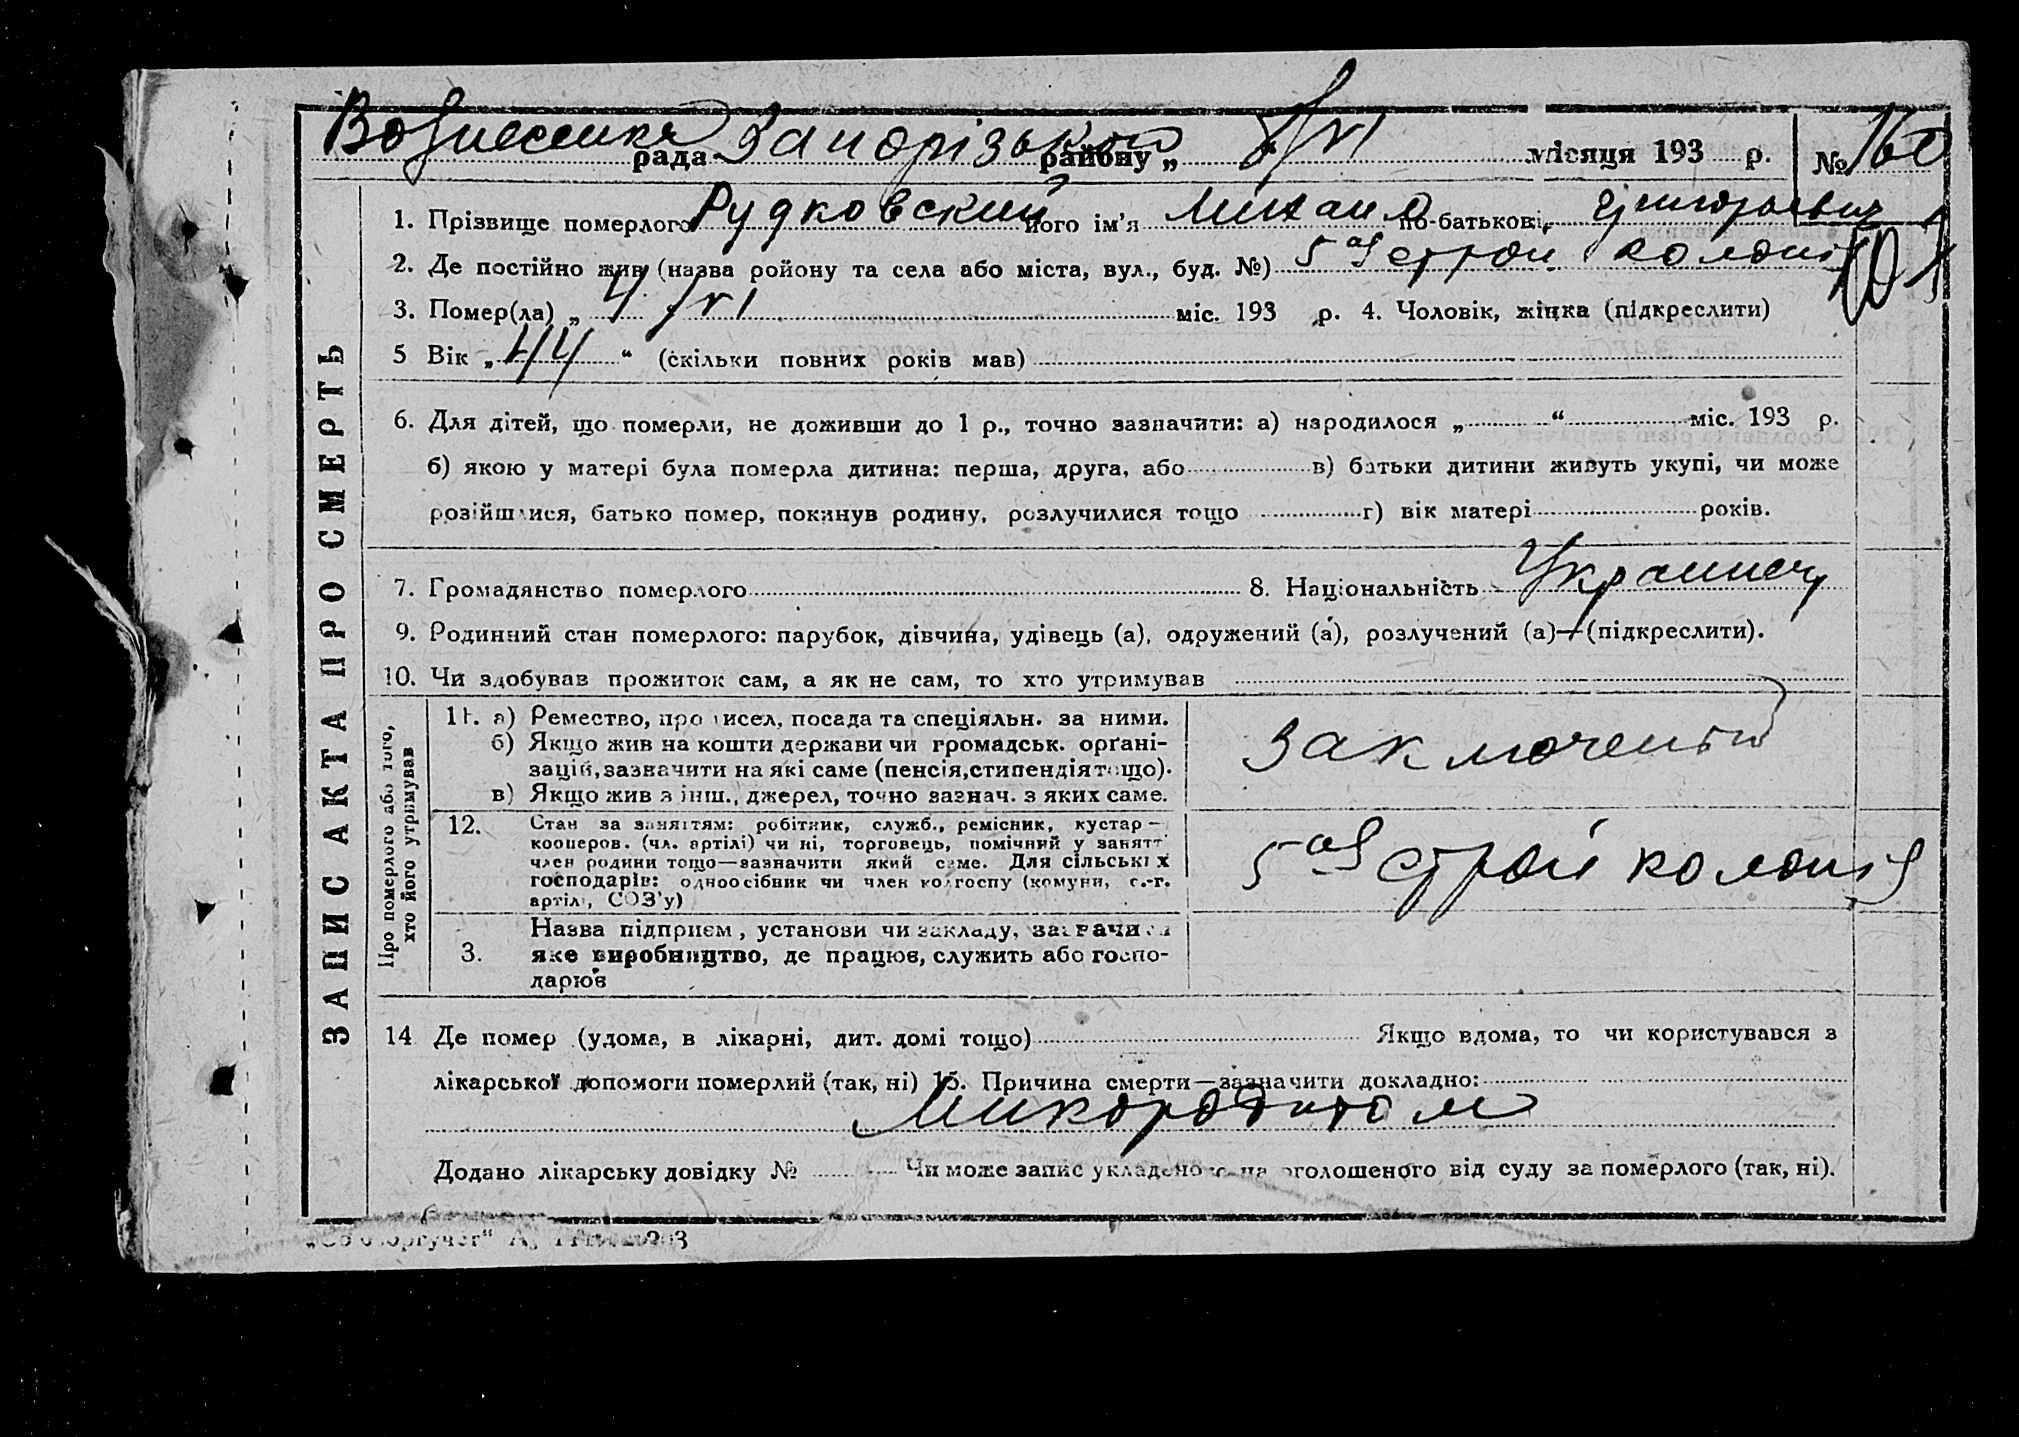 Вознесенка рада Запорізького району „ 8/VI місяця 193 р. № 160
1. Прізвище померлого Рудковский його ім'я Михаил по-батькові Григорьевич
2. Де постійно жив (назва ройону та села або міста, вул., буд. №) 5ая строй колонія
3. Помер(ла) „ 4/VI міс. 193 р. 4. Чоловік, жінка (підкреслити)
5 Вік „ 44 “ (скільки повних років мав)
6. Для дітей, що померли, не доживши до 1 р., точно зазначити: а) народилося „ “ міс. 193 р.
б) якою у матері була померла дитина: перша, друга, або в) батьки дитини живуть укупі, чи може
розійшлися, батько помер, покинув родину, розлучилися тощо г) вік матері років.
7. Громадянство померлого 8. Національність Украинец
9. Родинний стан померлого: парубок, дівчина, удівець (а), одружений (а), розлучений (а)—(підкреслити).
10. Чи здобував прожиток сам, а як не сам, то хто утримував
ЗАПИС АКТА ПРО СМЕРТЬ
Про померлого або того,
хто його утримував
11. а) Ремество, промисел, посада та спеціяльн. за ними.
б) Якщо жив на кошти держави чи громадськ. орґані-
зацій, зазначити на які саме (пенсія, стипендія тощо).
в) Якщо жив з інш., джерел, точно зазнач. з яких саме.
Заключеный
12. Стан за заняттям: робітник, служб., ремісник, кустар—
кооперов. (чл. артілі) чи ні, торговець, помічний у занятт
член родини тощо—зазначити який саме. Для сільських
господарів: одноосібник чи член колгоспу (комуни, с.-г.
артілі, СОЗ'у)
5ая строй колонія
3. Назва підприєм, установи чи закладу, зазначити
яке виробництво, де працюв, служить або госпо-
дарюв
14 Де помер (удома, в лікарні, дит. домі тощо) Якщо вдома, то чи користувався з
лікарської допомоги померлий (так, ні) 15. Причина смерти—зазначити докладно:
Додано лікарську довідку № Чи може запис укладено на оголошеного від суду за померлого (так, ні).